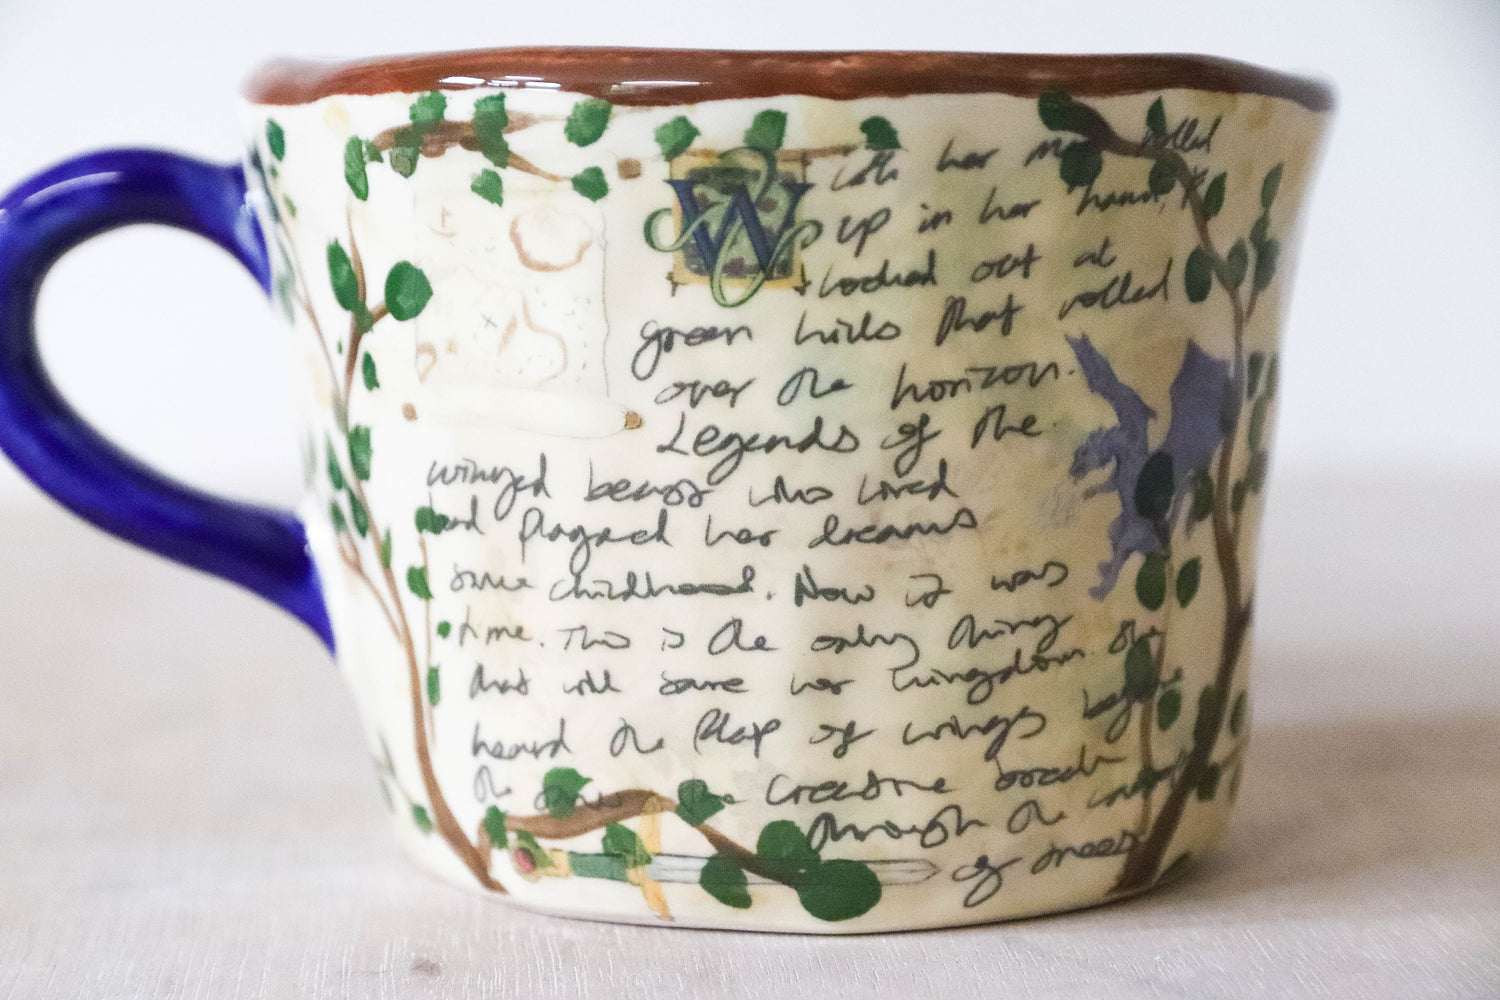 With her map rolled
up in her hand, 
looked out at
green hills that rolled
over the horizon.
Legends of the
winged beasts who lived
had plagued her dreams
since childhood. Now it was
time. This is the only thing
that will save her kingdom. She
heard the flap of wings before
the creature
through the
of trees